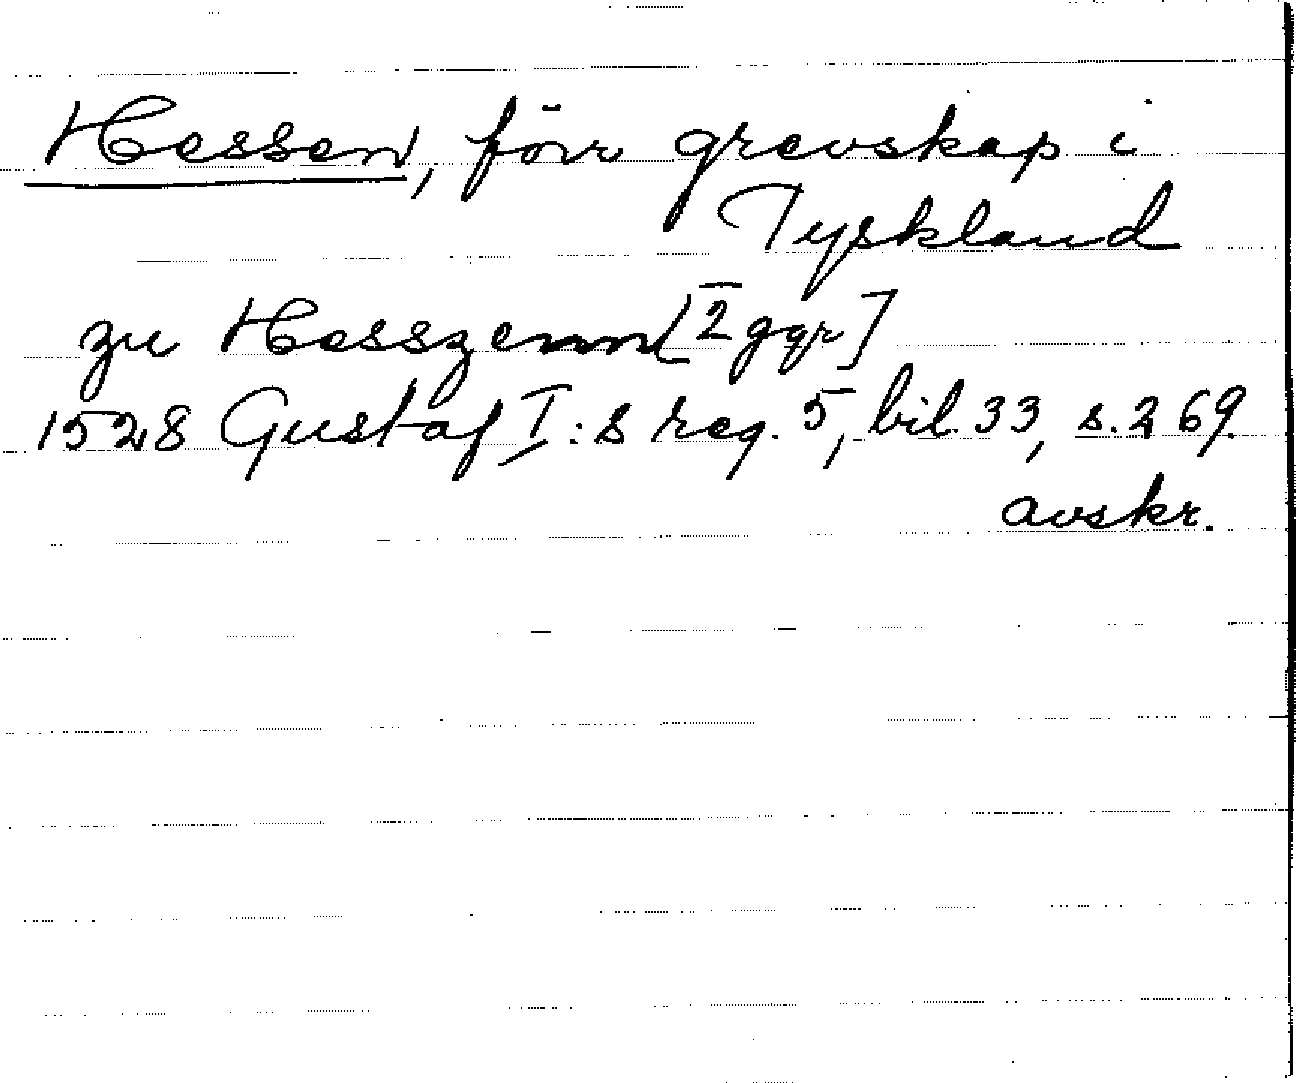 Hessen, förr grevskap i
Tyskland
zu Hesszenn [2 ggr]
1528 Gustaf I:s reg. 5, bil. 33, s. 269.
avskr.